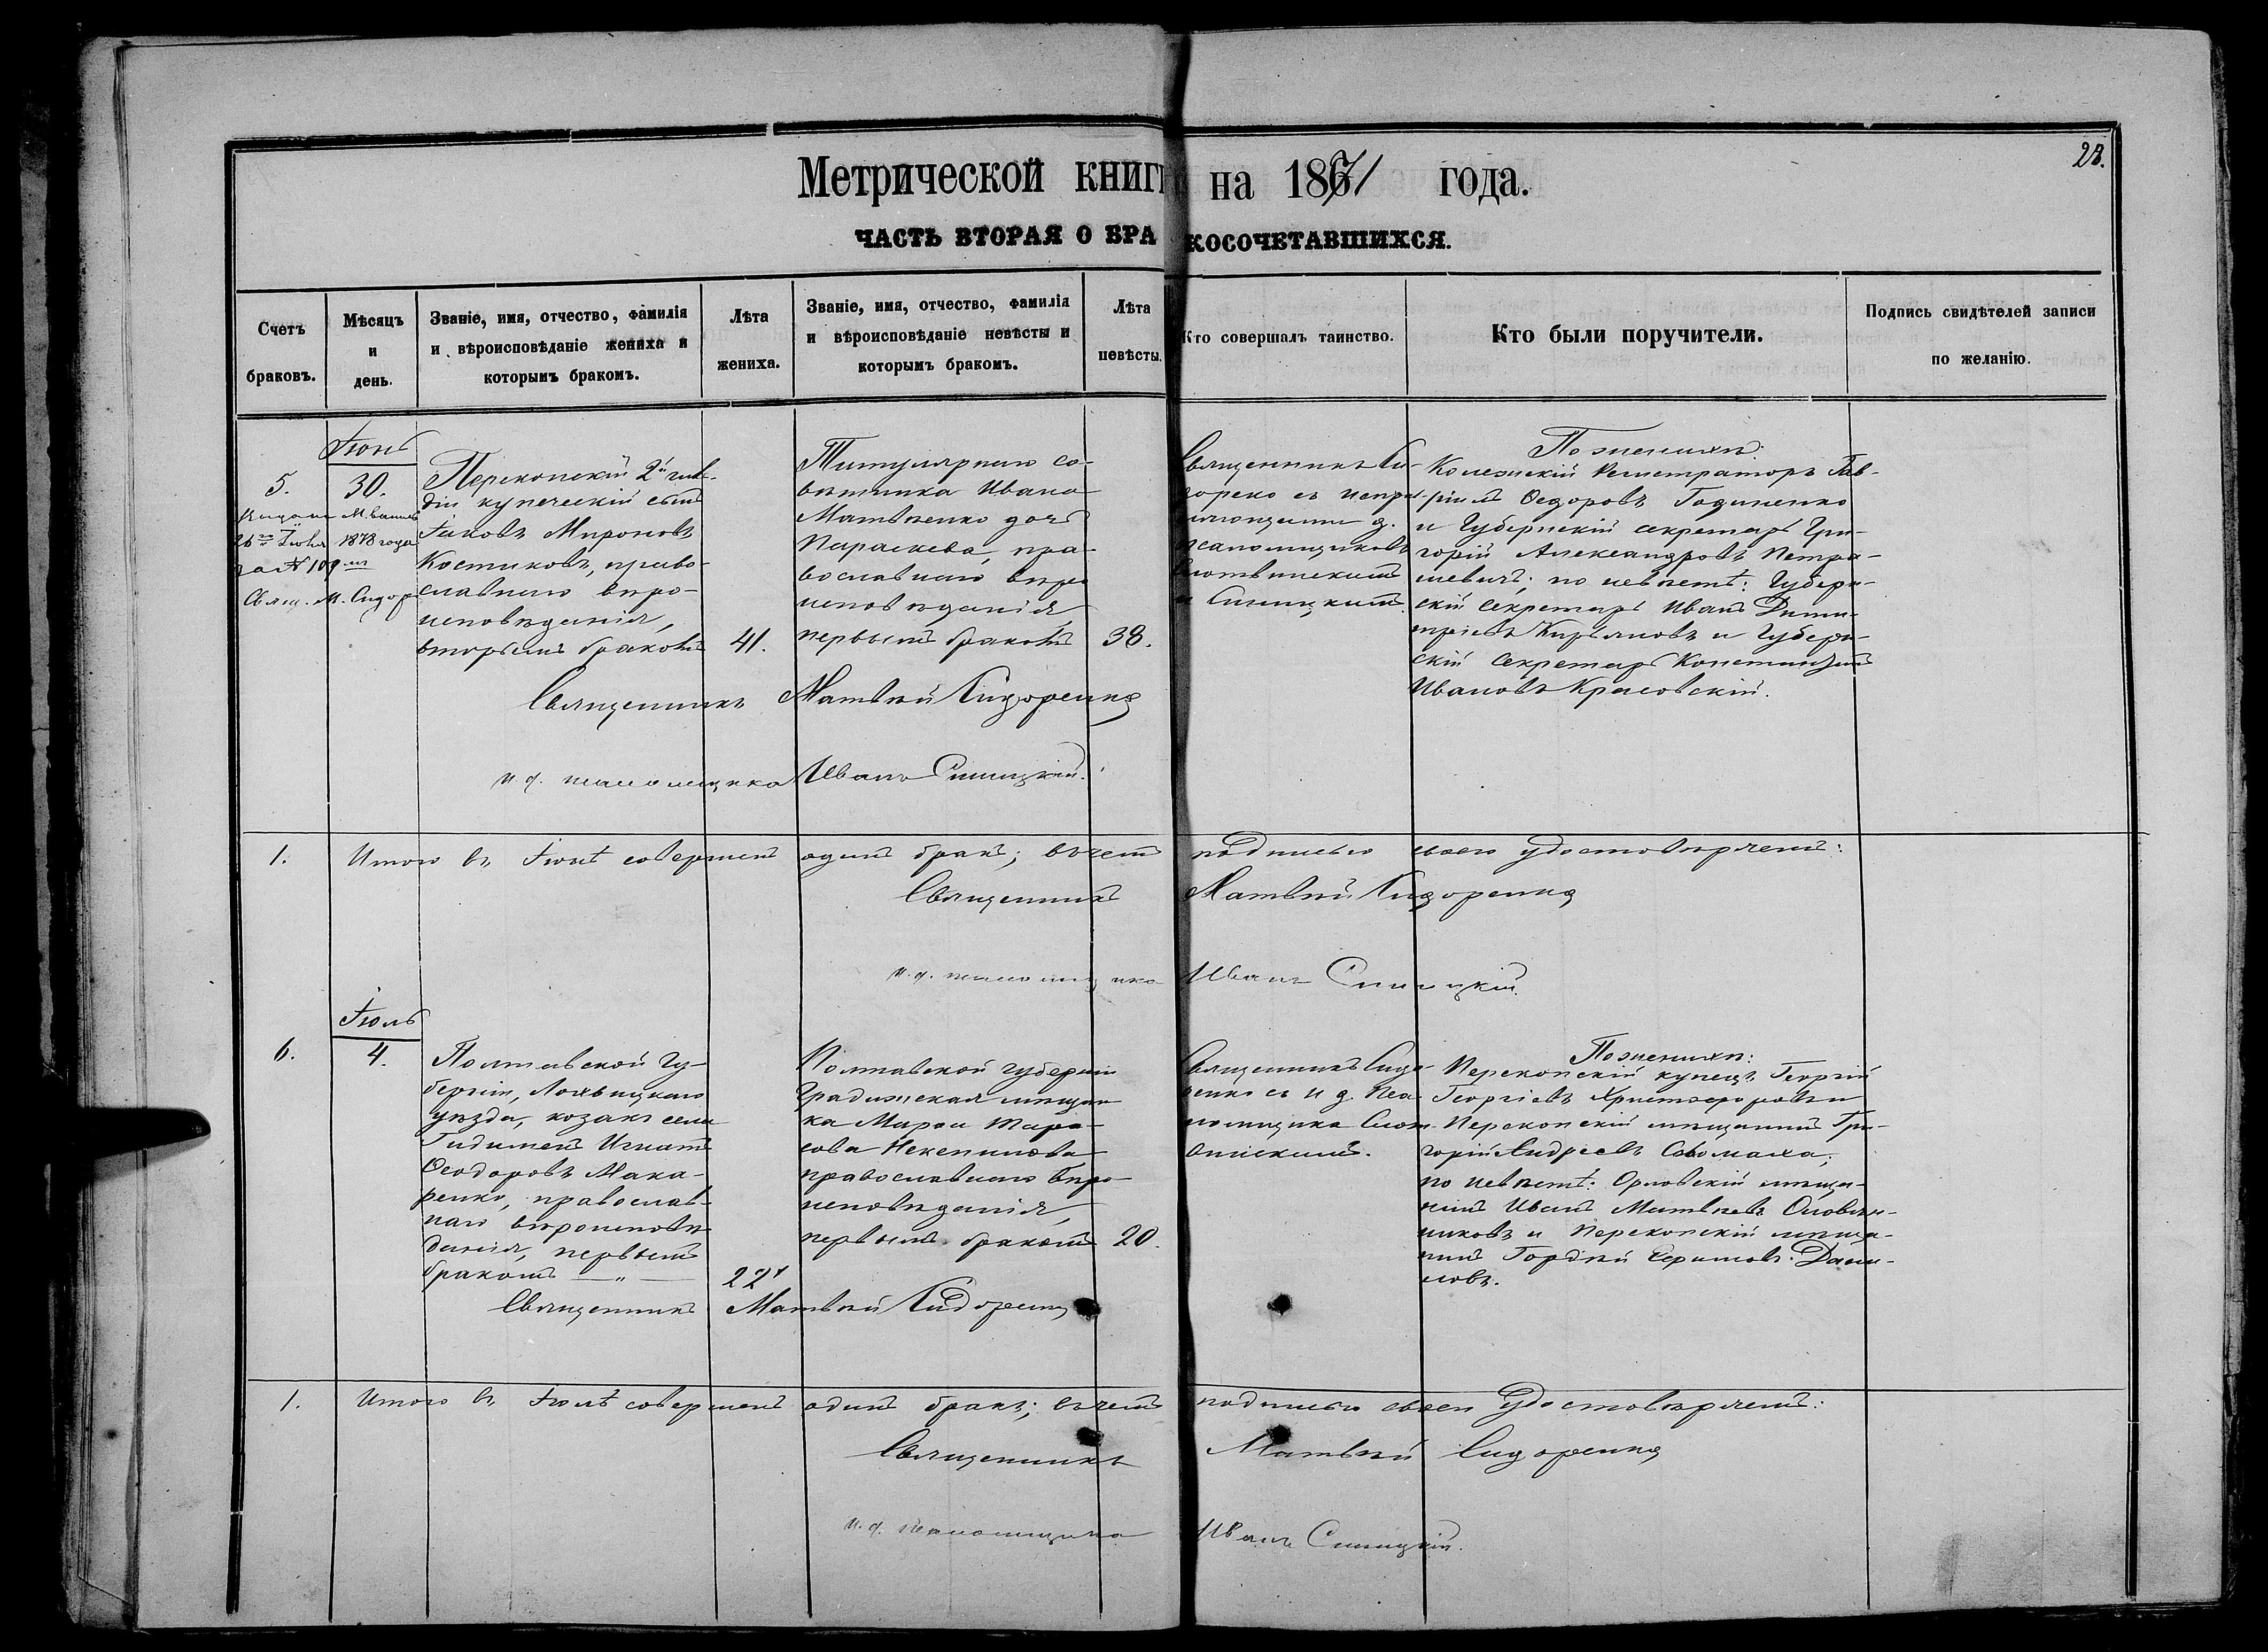 28.
Метрической книги на 1871 года.
ЧАСТЬ ВТОРАЯ О БРАКОСОЧЕТАВШИХСЯ.
Счетъ браковъ.
Мѣсяцъ и день.
Званіе, имя, отчество, фамилія
и вѣроисповѣданіе жениха и
которымъ бракомъ.
Лѣта жениха.
Званіе, имя, отчество, фамилія
и вѣроисповѣданіе невѣсты и
которымъ бракомъ.
Лѣта невѣсты.
Кто совершалъ таинство.
Кто были поручители.
Подпись свидѣтелей записи
по желанію.
5.
26го Іюня 1878 года
за № 109
Свящ. М. Сидор
Іюнь
30.
Перекопскій 2й гиль-
діи купеческій сынъ
Іаковъ Мироновъ
Костиковъ, право-
славнаго вѣро-
исповѣданія,
вторымъ бракомъ
41.
Титулярнаго со-
вѣтника Ивана
Матвѣенко дочь
Параскева, пра-
вославнаго вѣро
исповѣданія
первымъ бракомъ
38.
Священникъ Си-
доренко съ испра
вляющими д.
псаломщиковъ
и Синицкимъ.
По женихѣ:
Колежскій Регистраторъ Гав-
ріилъ Ѳедоровъ Годиненко
и Губернскій секретарь Гри-
горій Александровъ Петра-
шевичъ; по невѣстѣ: Губерн-
скій секретарь Иванъ Дими-
тріевъ Кирьяновъ и Губерн-
скій секретарь Константинъ
Ивановъ Красовскій.
Священникъ Матвѣй Сидоренко
и. д. псаломщика Иванъ Синицкій.
1. Итого въ Іюнѣ совершенъ одинъ бракъ; въ чемъ подписью своею удостовѣряемъ:
Священникъ Матвѣй Сидоренко
и. д. псаломщика Иванъ Синицкій.
6.
Іюль
4.
Полтавской Гу-
берніи, Лохвицкаго
уѣзда, козакъ села
Игнатъ
Ѳеодоровъ Мака-
ренко, православ-
наго вѣроисповѣ
данія, первымъ
бракомъ — „ —
22
Полтавской губерніи
Градижская мѣщан
ка Марѳа Тара-
сова
православнаго вѣро-
исповѣданія,
первымъ бракомъ
20.
Священникъ Сидо-
ренко съ и д. пса-
ломщика Слот-
винскимъ.
По женихѣ:
Перекопскій купецъ Георгій
Георгіевъ Христофоровъ и
Перекопскій мѣщанинъ Гри-
горій Андреевъ Соломаха;
по невѣстѣ: Орловскій мѣща-
нинъ Иванъ Матвѣевъ Оловян-
никовъ и Перекопскій мѣща-
нинъ Гордѣй Дани-
ловъ.
Священникъ Матвѣй Сидоренко
1. Итого въ Іюлѣ совершенъ одинъ бракъ; въ чемъ подписью своею удостовѣряемъ:
Священникъ Матвѣй Сидоренко
и. д. псаломщика Иванъ Синицкій.